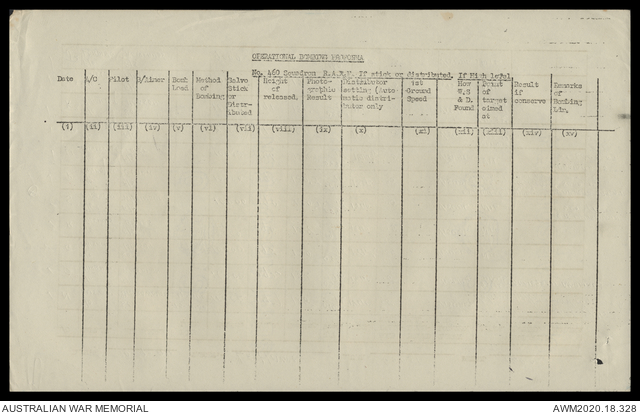 OPERATIONAL BOMBING PROFORMA
No. 460 Squadron R.A.A.F. If stick or distributed. If High level.
Date
A/C
Pilot
B/Aimer
Bomb
Load
Method
of
Bombing
Salvo
Stick
or
Distr-
ibuted
Height
of
released.
Photo-
graphic
Result
Distributor
setting (Auto-
matic distri-
butor only
1st
Ground
Speed
How
W.S
& D.
Found
Point
of
target
aimed
at
Result
if
conserve
Remarks
of
Bombing
Ldr.
(i) (ii) (iii) (iv) (v) (vi) (vii) (viii) (ix) (x) (xi) (xii) (xiii) (xiv) (xv)
AUSTRALIAN WAR MEMORIAL
AWM2020.18.328